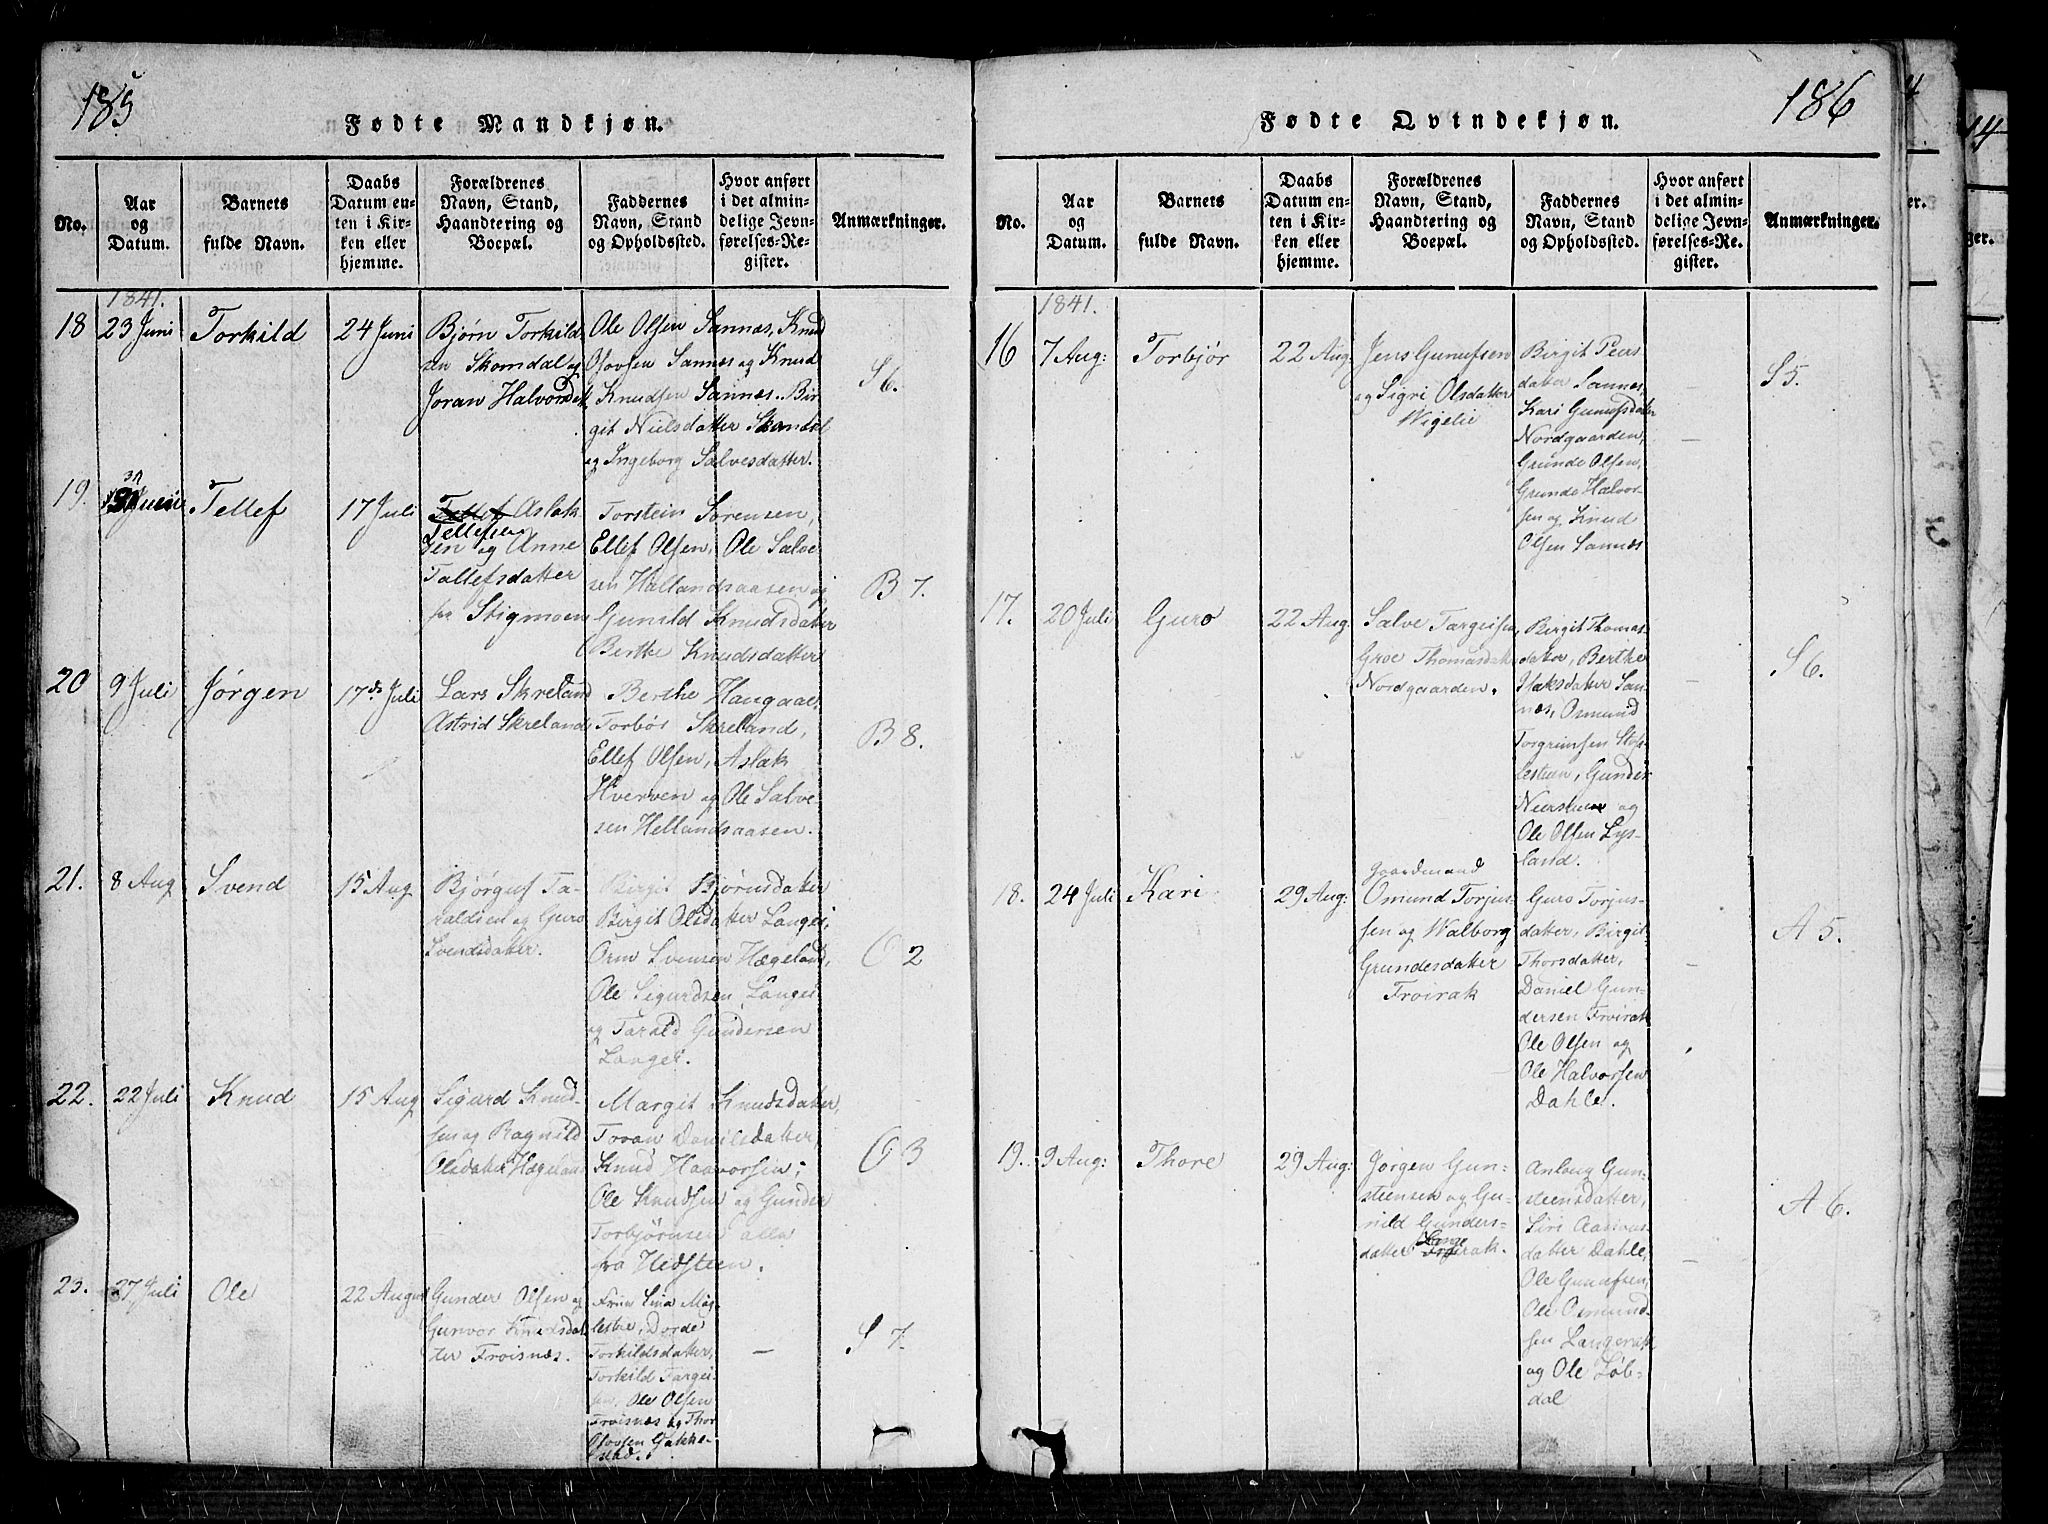 185
Fødte Mandkjøn.
No.
Aar
og
Datum.
Barnets
fulde Navn.
Daabs
Datum en-
ten i Kir-
ken eller
hjemme.
Forældrenes
Navn, Stand,
Haandtering og
Boepæl.
Faddernes
Navn, Stand
og Opholdssted.
Hvor anført
i det almin-
delige Jevn-
førelses-Re-
gister.
Anmærkninger.
1841.
18
23 Juni
Torkild
24 Juni
Bjørn Torkild-
sen Skomdal og
Joran Halvorsdatt
Ole Olsen Sannæs, Knud
Olovsen Sannæs og Knud
Knudsen Sannæs. Bir
git Nielsdatter Skomdal
og Ingeborg Salvesdatter.
S 6.
19.
30 Juni
Tellef
17 Juli
Aslak
Tellefsen
og Anne
Tallefsdatter
fra Stigmoen
Torstein Sørensen,
Ellef Olsen, Ole Salve
sen Hallandsaasen og
Gunild Knudsdatter
Berthe Knudsdatter
B 7.
20
9 Juli
Jørgen
17de Juli
Lars Skreland
Astrid Skreland
Berthe Haugaas
Torbør Skreland,
Ellef Olsen, Aslak
Hverven og Ole Salve-
sen Hellandsaasen.
B 8.
21.
8 Aug
Svend
15 Aug
Bjørguf Ta-
raldsen og Guro
Svendsdatter.
Birgit Bjørnsdatter
Birgit Olsdatter Langei,
Orm Svensen Hægeland,
Ole Sigurdsen Langei
og Tarald Gundersen
Langei.
O 2
22.
22 Juli
Knud
15 Aug
Sigurd Knud-
sen og Ragnild
Olsdatter Hægeland
Margit Knudsdatter,
Toran Danilsdatter,
Knud Haavorsen,
Ole Knudsen og Gunder
Torbjørnsen alle
fra Hedsteen.
O 3
23.
27 Juli
Ole
22 August
Gunder Olsen og
Gunvor Knudsdat
ter Froisnæs.
Frue Lina Møg-
lestue, Dorde
Torkildsdatter,
Torkild Targei-
sen, Ole Olsen
Froisnæs og Thor
Olovsen Gakke-
stad.
—
S 7.
186
Fødte Qvindekjøn.
No.
Aar
og
Datum.
Barnets
fulde Navn.
Daabs
Datum en-
ten i Kir-
ken eller
hjemme.
Forældrenes
Navn, Stand,
Haandtering og
Boepæl.
Faddernes
Navn, Stand
og Opholdssted.
Hvor anført
i det almin-
delige Jevn-
førelses-Re-
gister.
Anmærkninger.
1841.
16
7 Aug:
Torbjør
22 Aug
Jens Gunufsen
og Sigri Olsdatter
Wigelie
Birgit Peers
datter Sannæs,
Kari Gunufsdatter
Nordgaarden,
Grunde Olsen,
Grunde Halvor-
sen og Knud
Olsen Sannæs
—
S 5.
17.
20 Juli
Guro
22 Aug
Salve Targeisen,
Groe Thomasdatter
Nordgaarden.
Birgit Thomas-
datter, Berthe
Isaksdatter San
næs, Osmund
Torgrimsen
Gunder
Niersteen og
Ole Olsen Lys-
land.
—
S 6.
18.
24 Juli
Kari
29 Aug:
Gaardmand
Omund Torjus-
sen og Walborg
Grundesdatter
Froirak
Guro Torjus-
datter, Birgit
Thorsdatter,
Daniel Gun-
dersen Froirak
Ole Olsen og
Ole Halvorsen
Dahle.
—
A 5.
19.
9 Aug:
Thore
29 Aug:
Jørgen Gun-
steensen og Gu-
nild Gunders-
datter Langerak.
Anlaug Gun-
steensdatter,
Siri Aasmus-
datter Dahle,
Ole Gunufsen,
Ole Osmund-
sen Langerak
og Ole Løb-
dal
—
A 6.